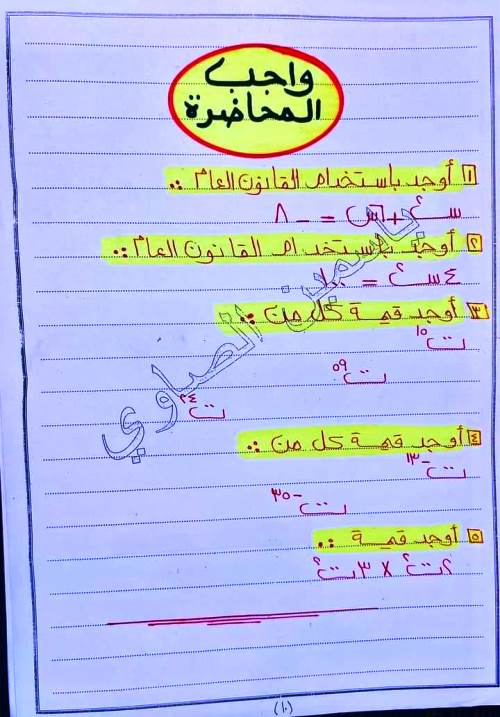 واجب
المحاضرة
١ أوجد باستخدام القانون العام :.
٢ أوجد باستخدام القانون العام :.
٣ أوجد قيمة كل من :.
ت١٥
ت٥٩
ت٢٤
٤ أوجد قيمة كل من :.
ت-١٣
ت-٣٥
٥ أوجد قيمة :.
الصاوي
(١٠)